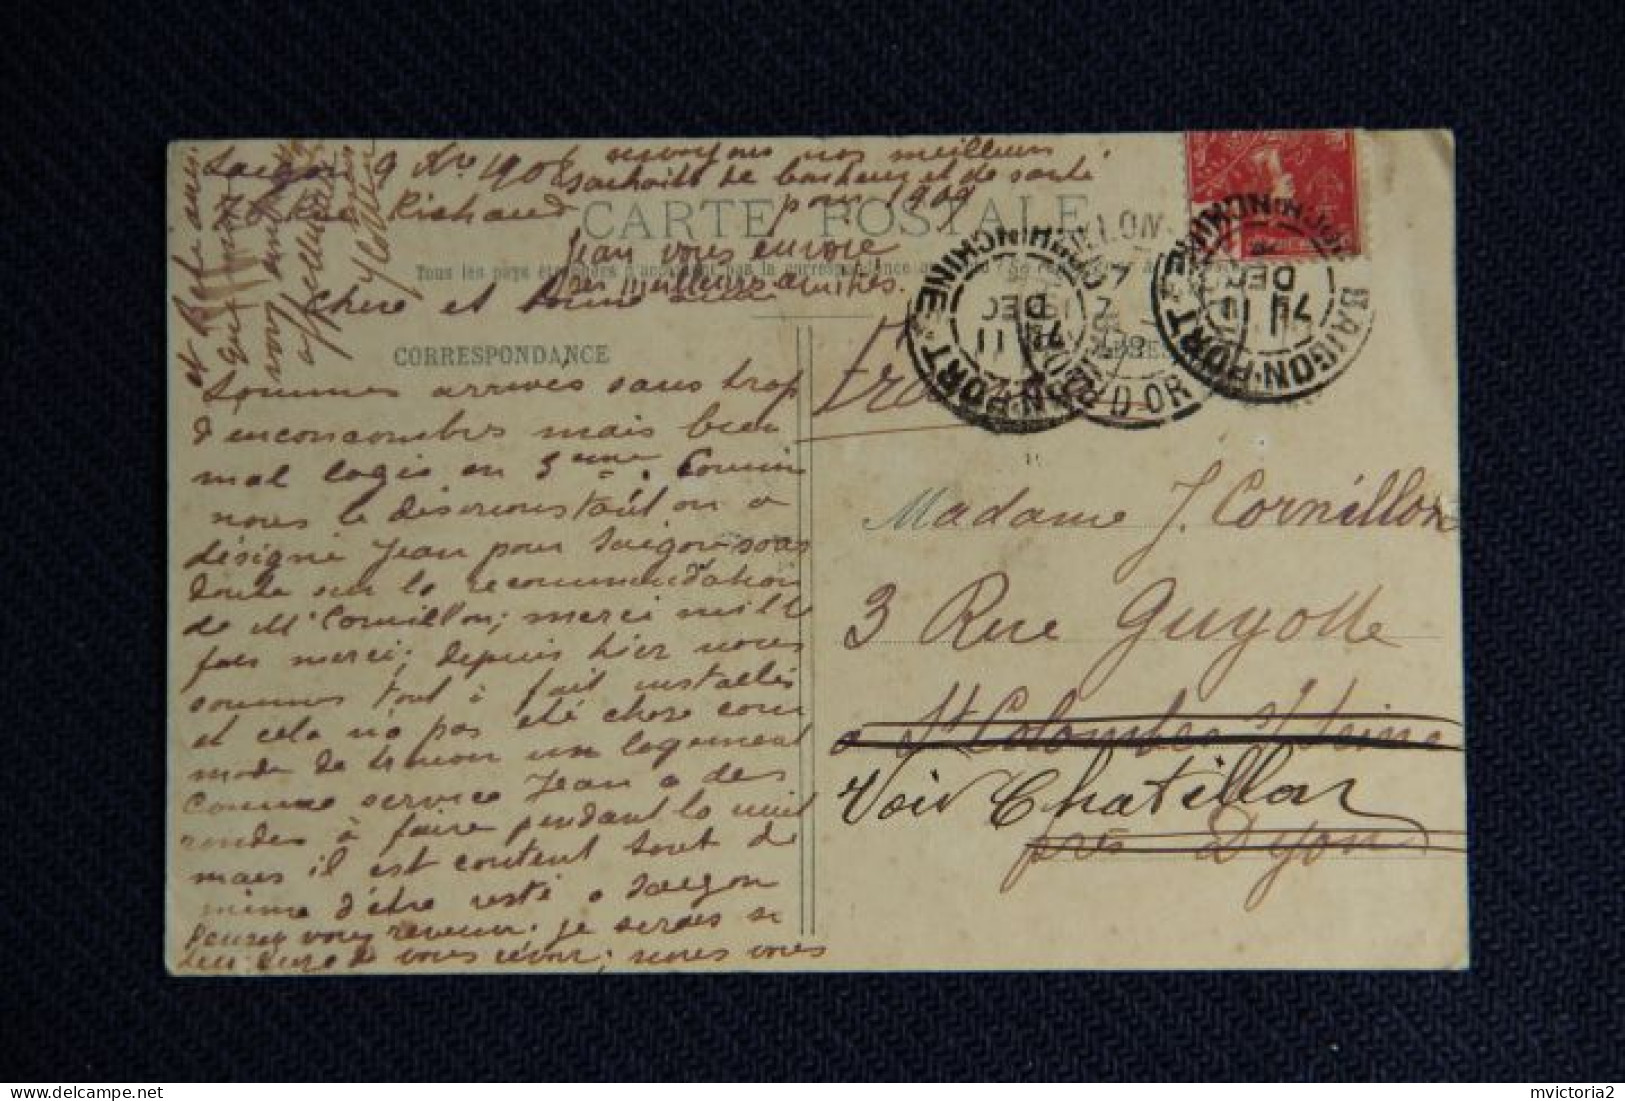 Saigon 9 Xbre 1908
76 Rue Richaud
envoyons nos meilleurs
souhaits de bonheur et de santé
pour 1909
CARTE POSTALE
Jean vous envoie
Tous les pays étrangers n'acceptent pas la correspondance au
ses meilleures amitiés.
Chère et bonne amie
CORRESPONDANCE
Sommes arrivés sans trop
d'enconcombres mais bien
mal logés en 3eme. Comme
nous le désirions tant on a
désigné Jean pour Saigon sans
doute sur la recommendation
de Mr Cornillon; merci mille
fois merci; depuis hier nous
sommes tout à fait installés
et cela n'a pas été chose com
mode de trouver un logement
Comme service Jean a des
rondes à faire pendant la nuit
mais il est content tout de
même d'être resté a Saigon
Pensez vous revenir. je serais si
heureuse de vous revoir; nous vous
Madame J. Cornillon
3 Rue Guyotte
a St Colombe s/ Seine
Voir Chatillon
près Dijon
SAIGON-PORT
COCHINCHINE
11 DEC
SAIGON-PORT
COCHINCHINE
11 DEC
COTE D'OR
mvictoria2